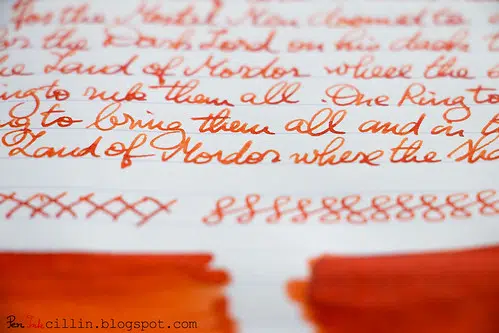 for the Mortal Men doomed to
for the Dark Lord on his dark
the Land of Mordor where the
ing to rule them all. One Ring to
ng to bring them all and in
Land of Mordor where the Sha
PenInkcillin.blogspot.com